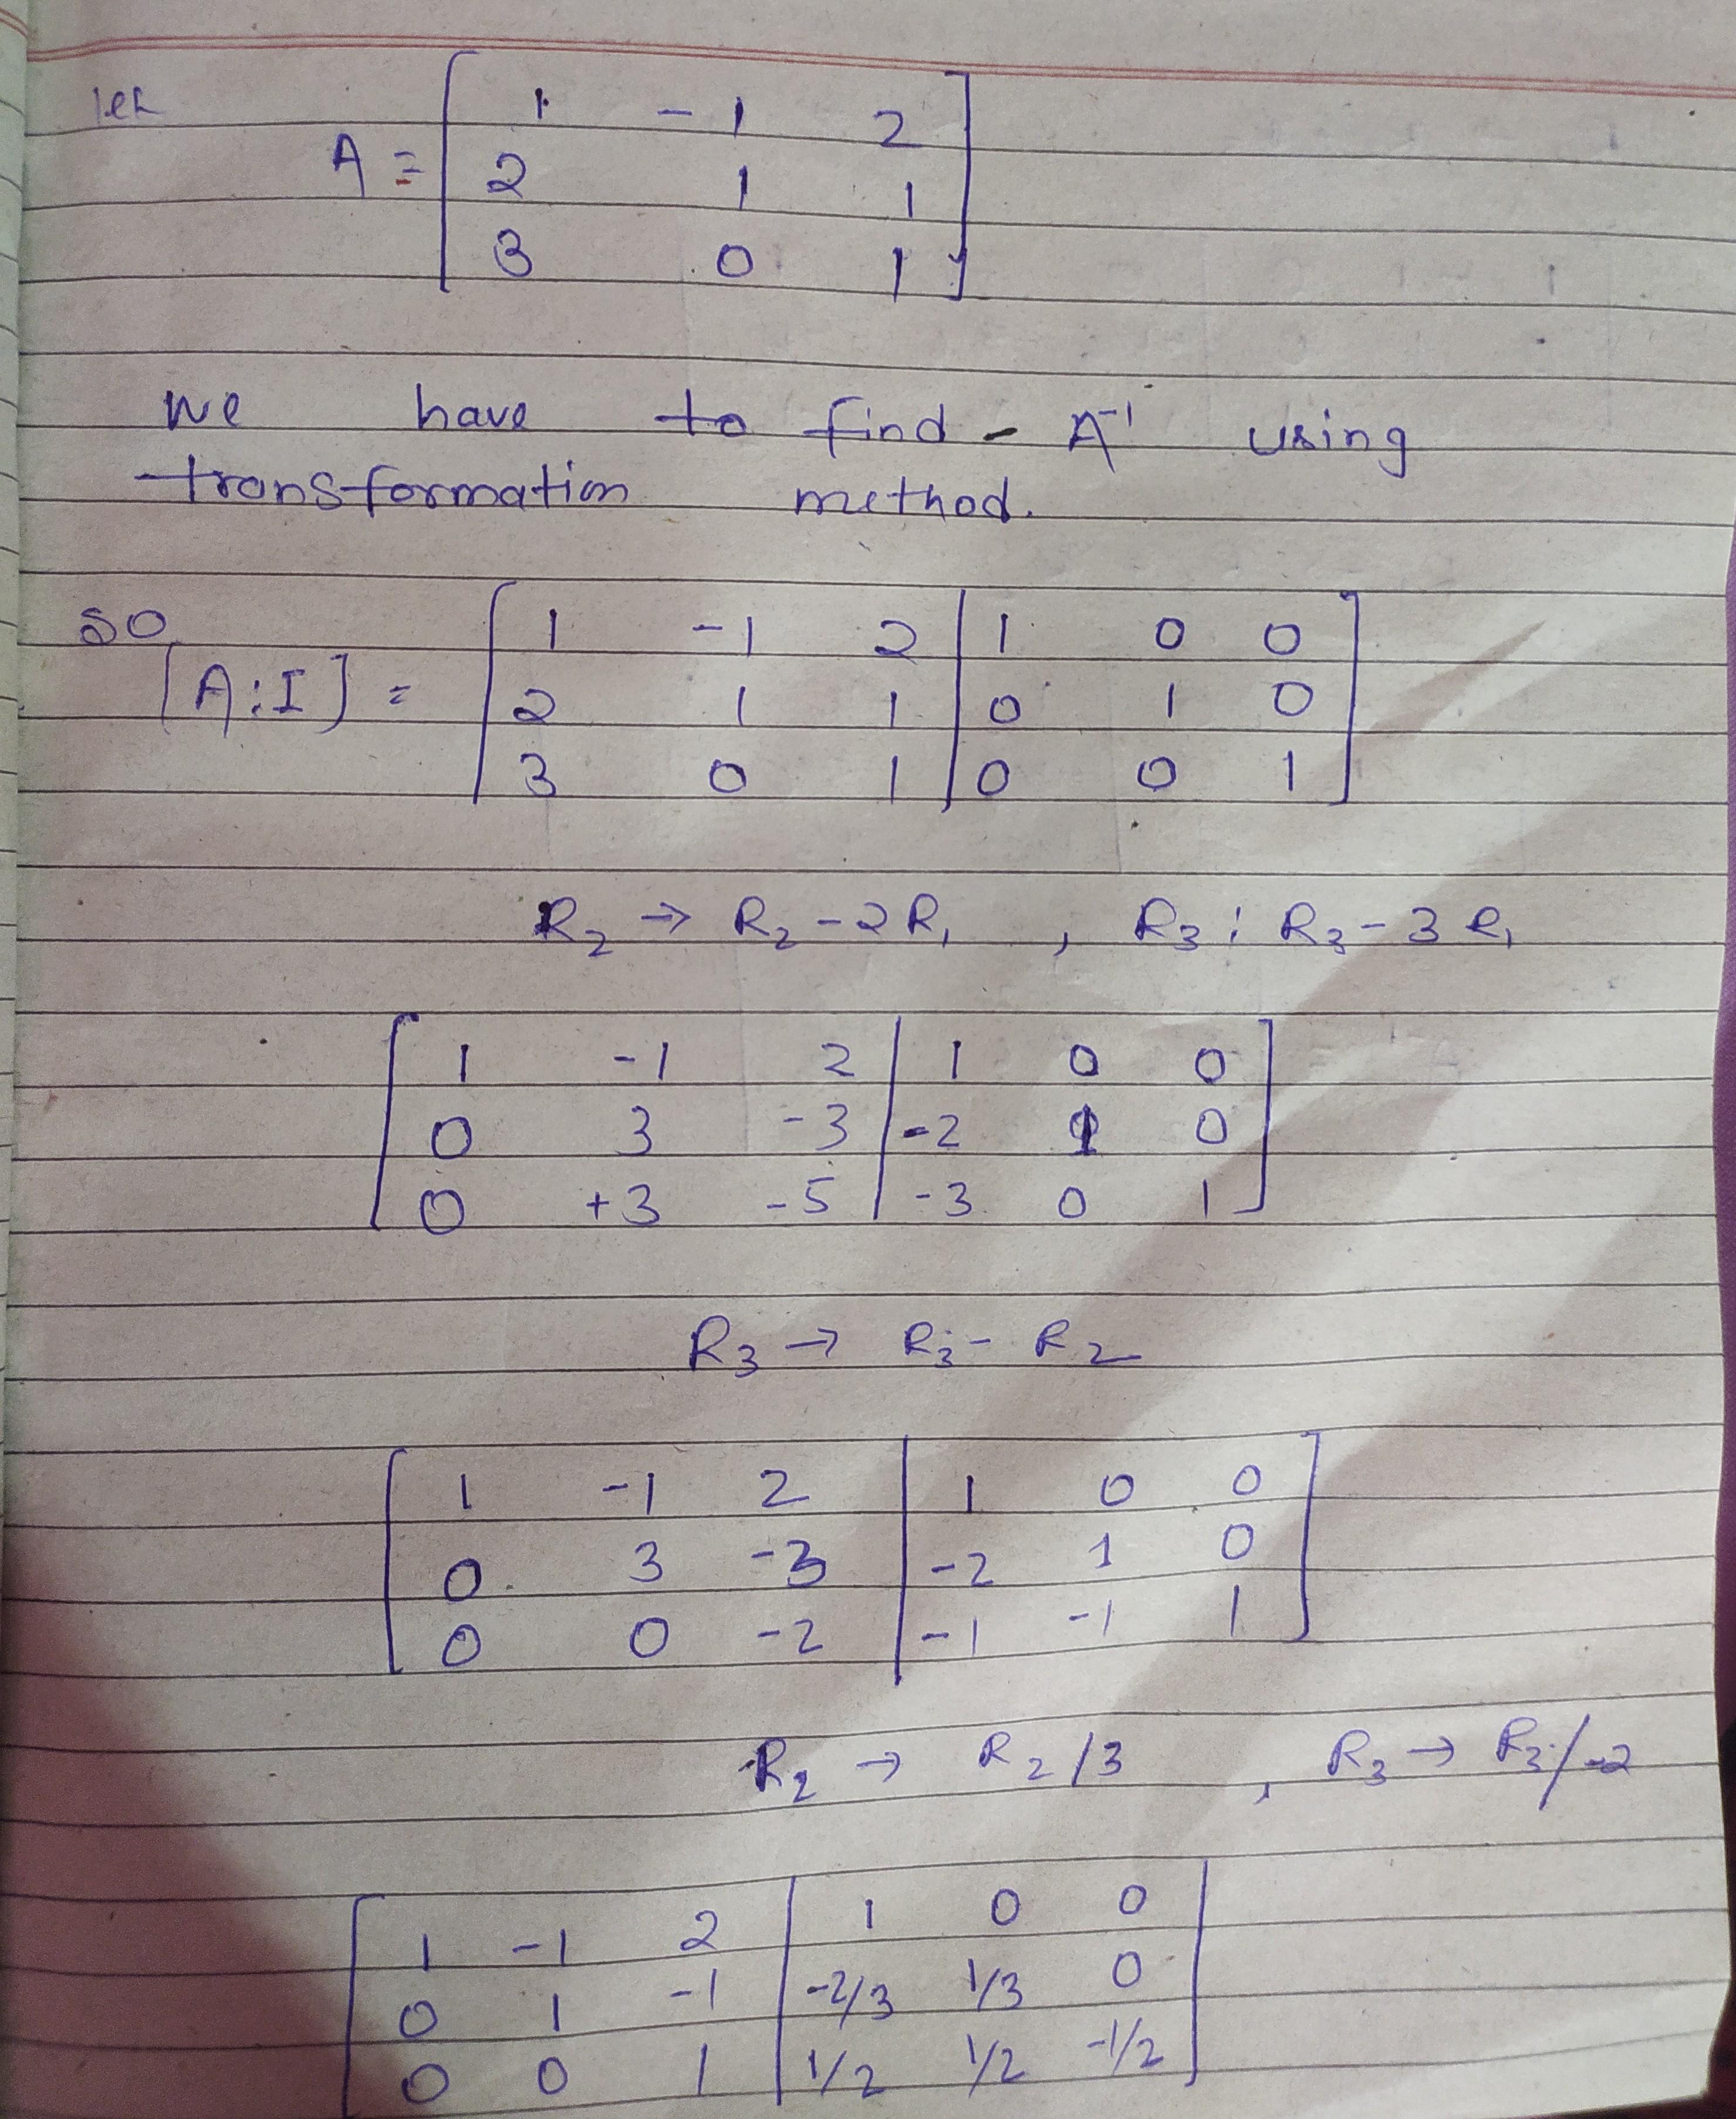 let
A = [ 1 -1 2
2 1 1
3 0 1 ]
we have to find - A⁻¹ using
transformation method.
so
[A:I] = [ 1 -1 2 | 1 0 0
2 1 1 | 0 1 0
3 0 1 | 0 0 1 ]
R₂ → R₂ - 2R₁ , R₃ : R₃ - 3R₁
[ 1 -1 2 | 1 0 0
0 3 -3 | -2 1 0
0 +3 -5 | -3 0 1 ]
R₃ → R₃ - R₂
[ 1 -1 2 | 1 0 0
0 3 -3 | -2 1 0
0 0 -2 | -1 -1 1 ]
R₂ → R₂/3 , R₃ → R₃/-2
[ 1 -1 2 | 1 0 0
0 1 -1 | -2/3 1/3 0
0 0 1 | 1/2 1/2 -1/2 ]